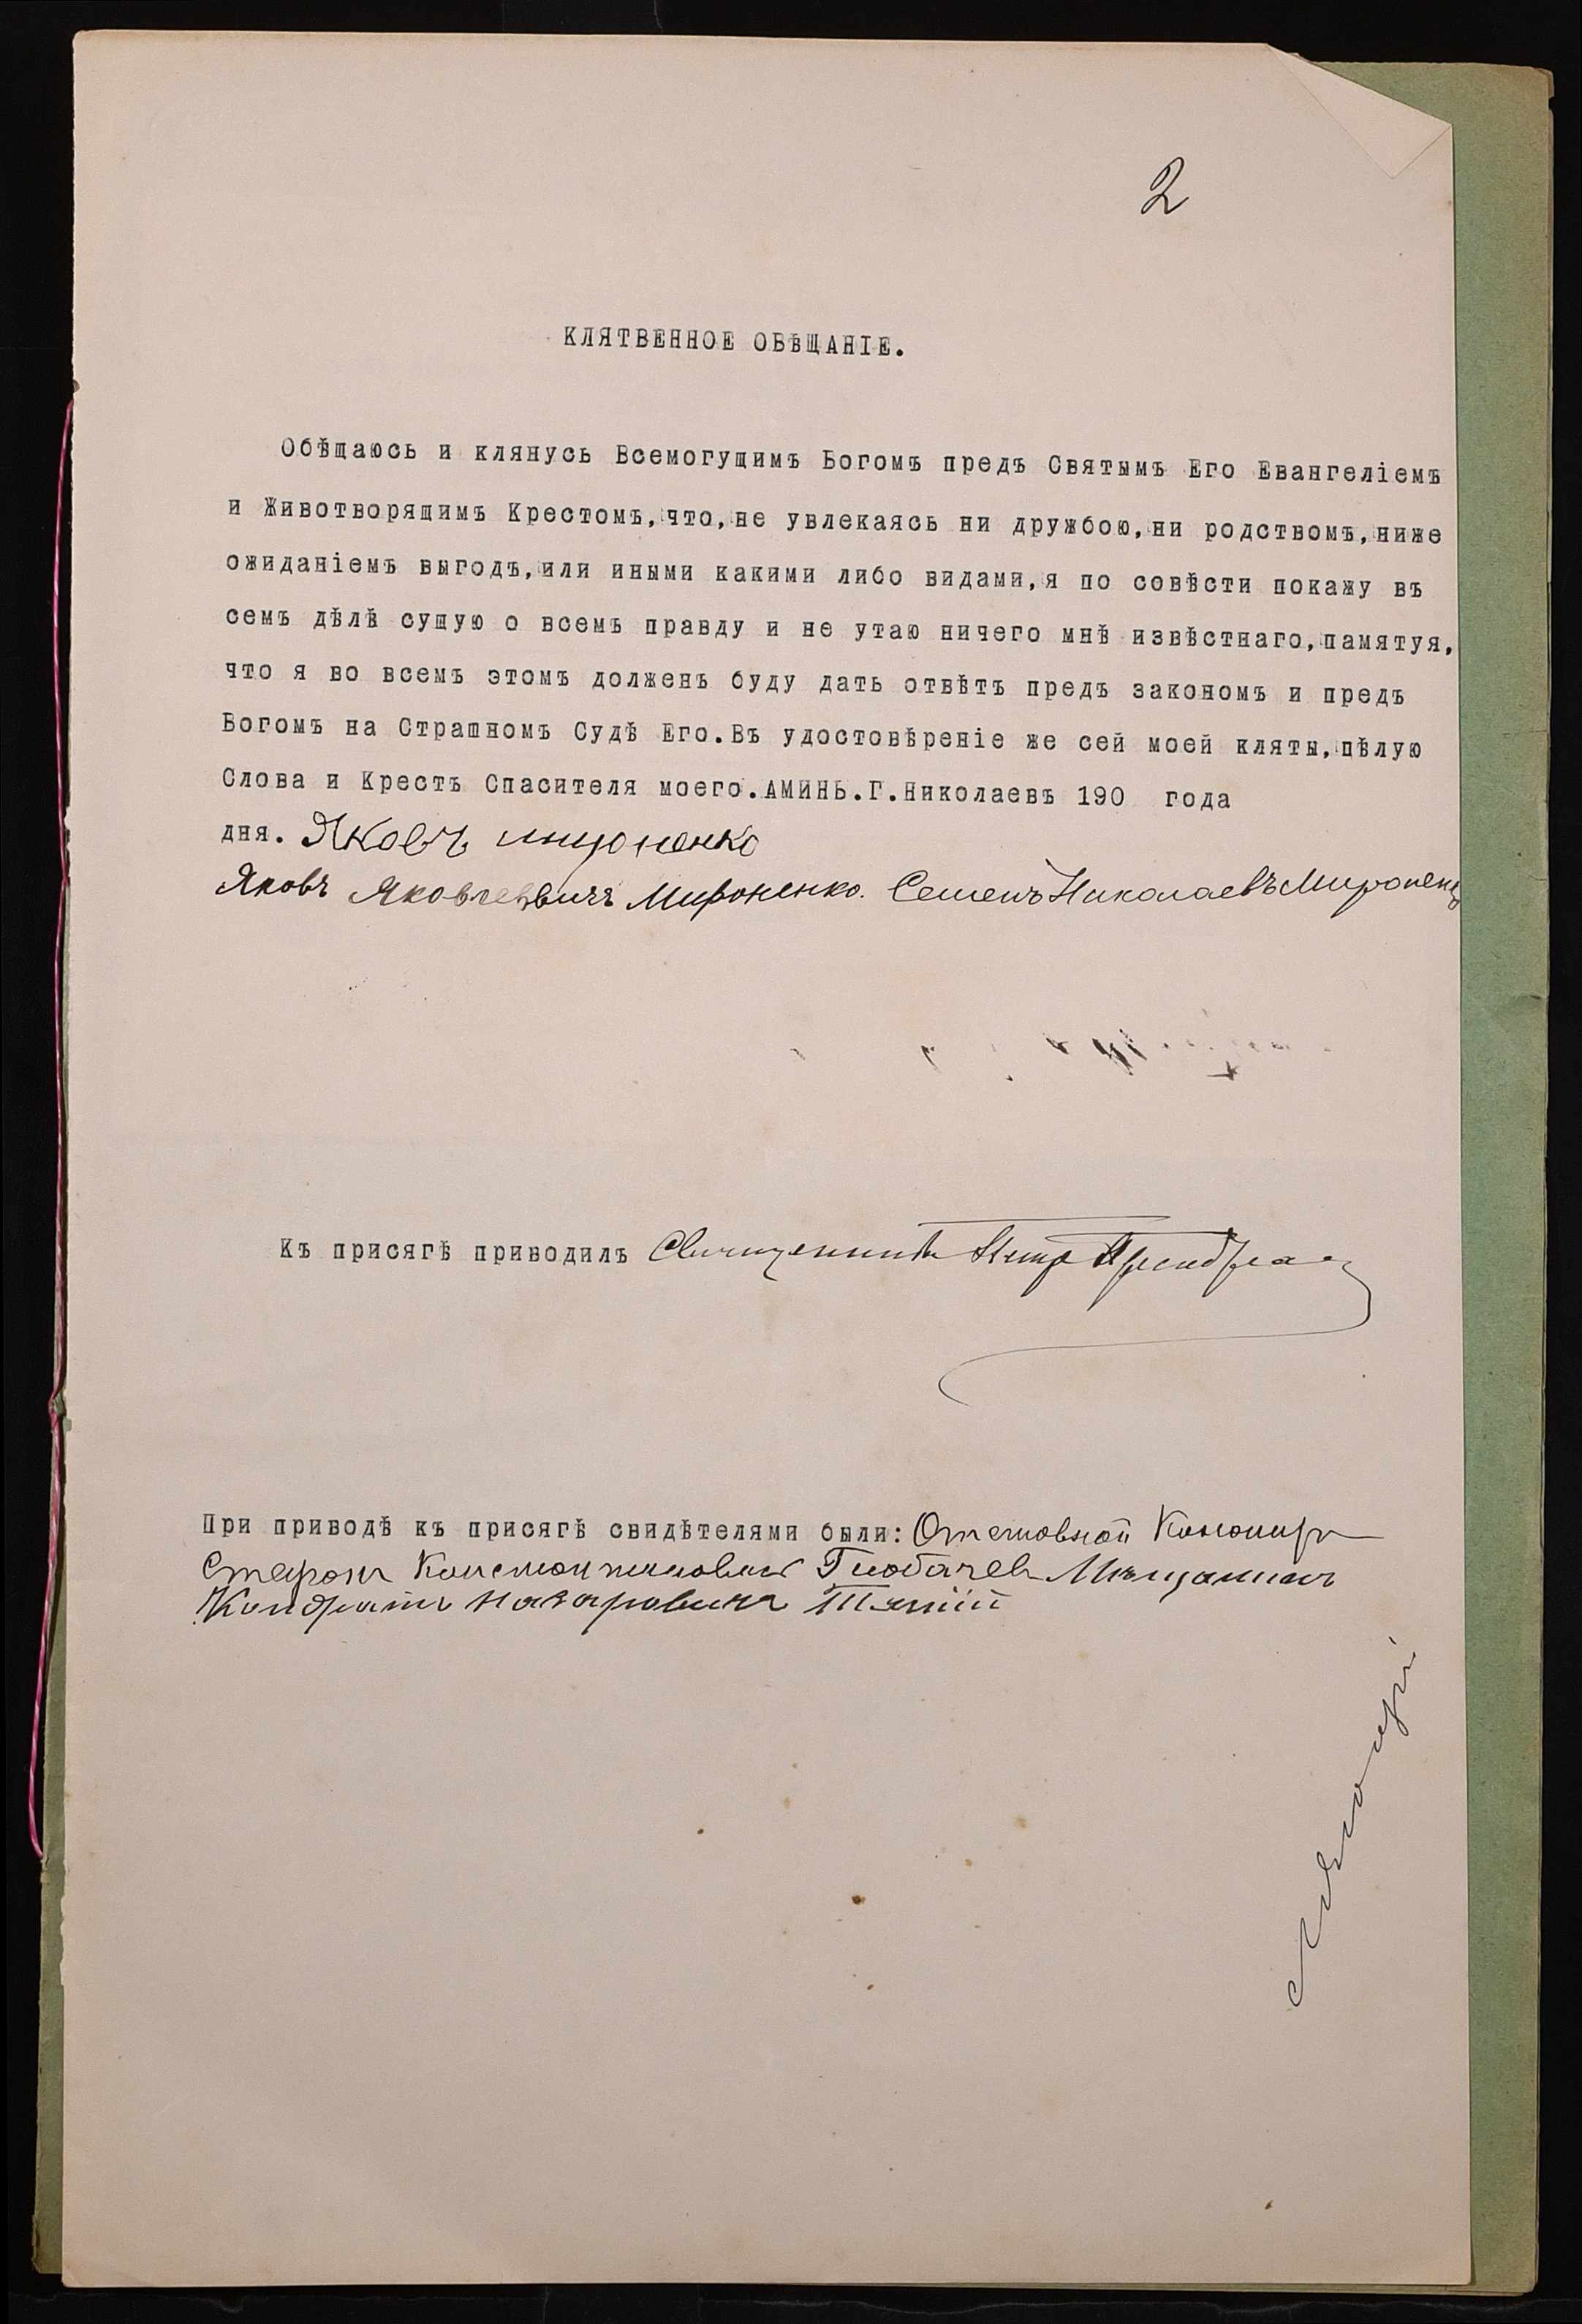 2
КЛЯТВЕННОЕ ОБѢЩАНІЕ.
Обѣщаюсь и клянусь Всемогущимъ Богомъ предъ Святымъ Его Евангеліемъ
и Животворящимъ Крестомъ, что, не увлекаясь ни дружбою, ни родствомъ, ниже
ожиданіемъ выгодъ, или иными какими либо видами, я по совѣсти покажу въ
семъ дѣлѣ сущую о всемъ правду и не утаю ничего мнѣ извѣстнаго, памятуя,
что я во всемъ этомъ долженъ буду дать отвѣтъ предъ закономъ и предъ
Богомъ на Страшномъ Судѣ Его. Въ удостовѣреніе же сей моей кляты, цѣлую
Слова и Крестъ Спасителя моего. АМИНЬ. Г. Николаевъ 190 года
дня. Яковъ мироненко
Яковъ Яковлевичъ Мироненко. Семенъ Николаевъ Мироненко
Къ присягѣ приводилъ Священникъ Петръ
При приводѣ къ присягѣ свидѣтелями были: Отставной
Константиновичъ Мѣщанинъ
Кондратъ Назаровичъ